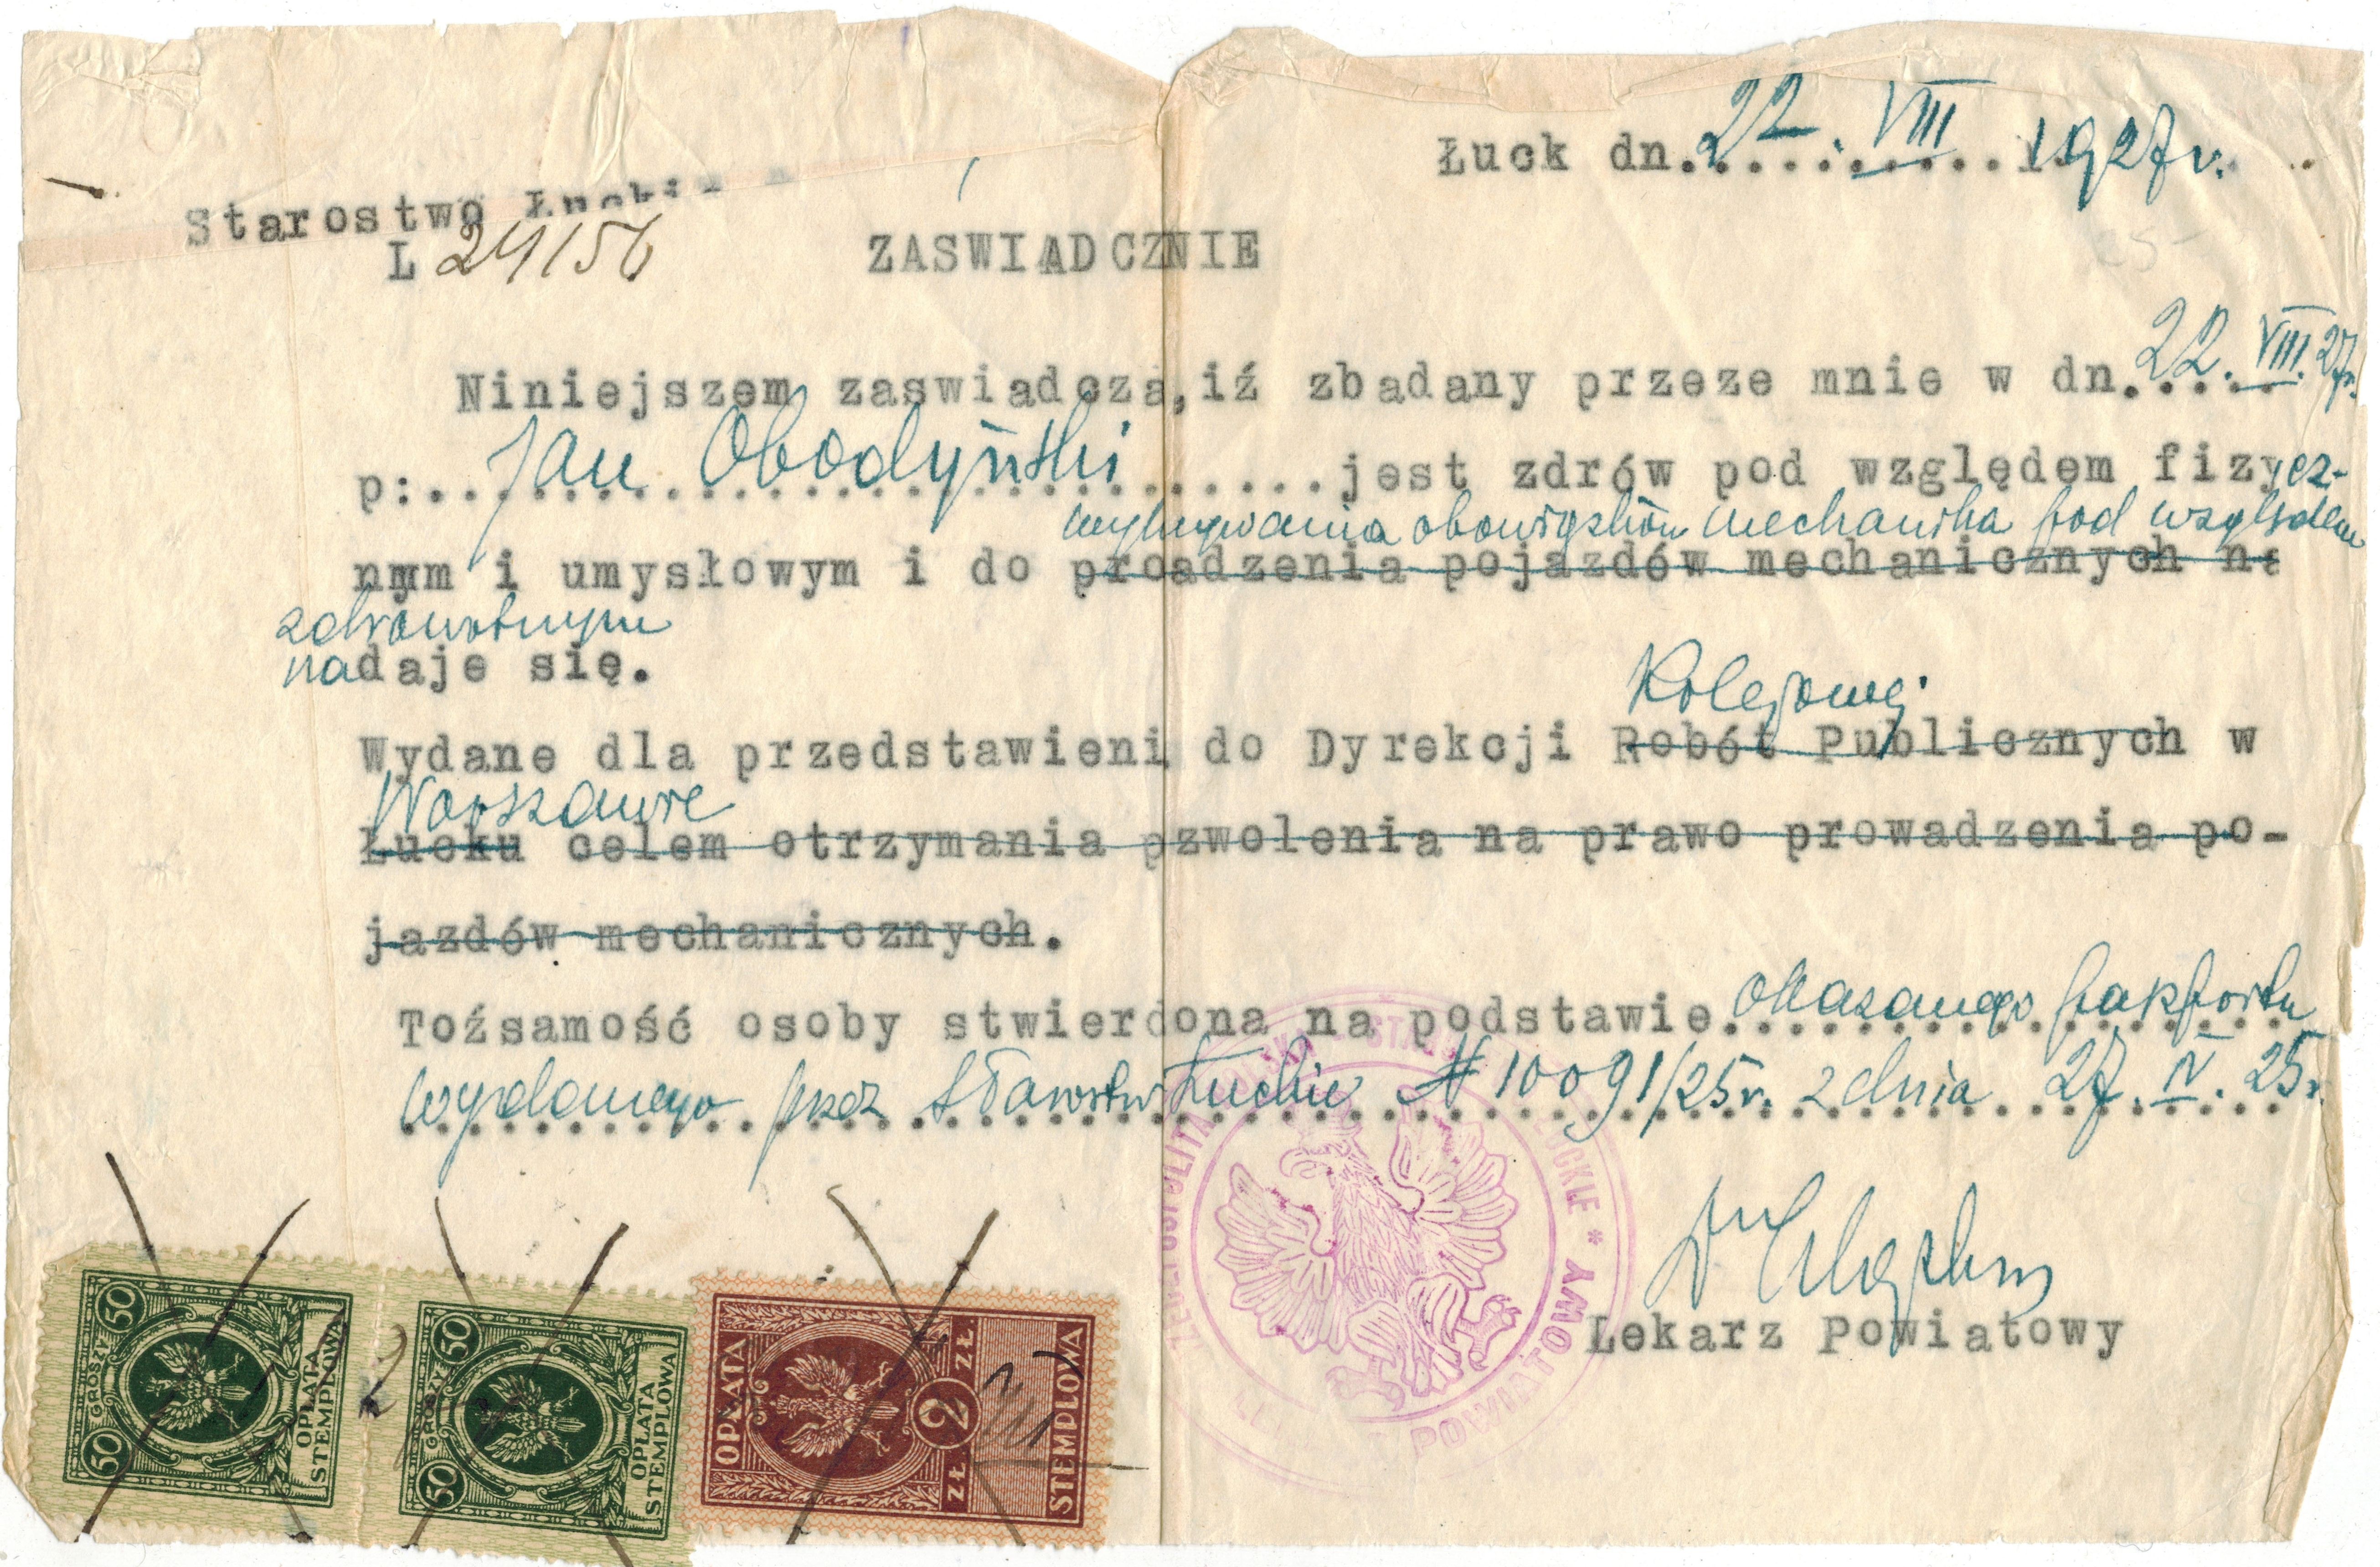 Łuck dn. 22. VIII 1927 r.
Starostwo
L 24/56
ZASWIADCZNIE
Niniejszem zaswiadcza,iż zbadany przeze mnie w dn. 22. VIII. 27 r.
p: Jan Obodyński jest zdrów pod względem fizycz-
wykonywania obowiązków mechanika pod względem
nym i umysłowym i do proadzenia pojazdów mechanicznych
zdrowotnym
nadaje się.
Kolejowej
Wydane dla przedstawieni do Dyrekcji Robót Publicznych w
Warszawie
Łucku celem otrzymania pzwolenia na prawo prowadzenia po-
jazdów mechanicznych.
Toźsamość osoby stwierdona na podstawie okazanego paszportu
wydanego przez Starostwo Łuckie N 10091/25 r. z dnia 27. IV. 25 r.
Dr
Lekarz Powiatowy
POLSKA
POWIATOWY
50 GROSZY 50
OPŁATA
STEMPLOWA
50 GROSZY 50
OPŁATA
STEMPLOWA
OPŁATA
ZŁ 2 ZŁ.
STEMPLOWA